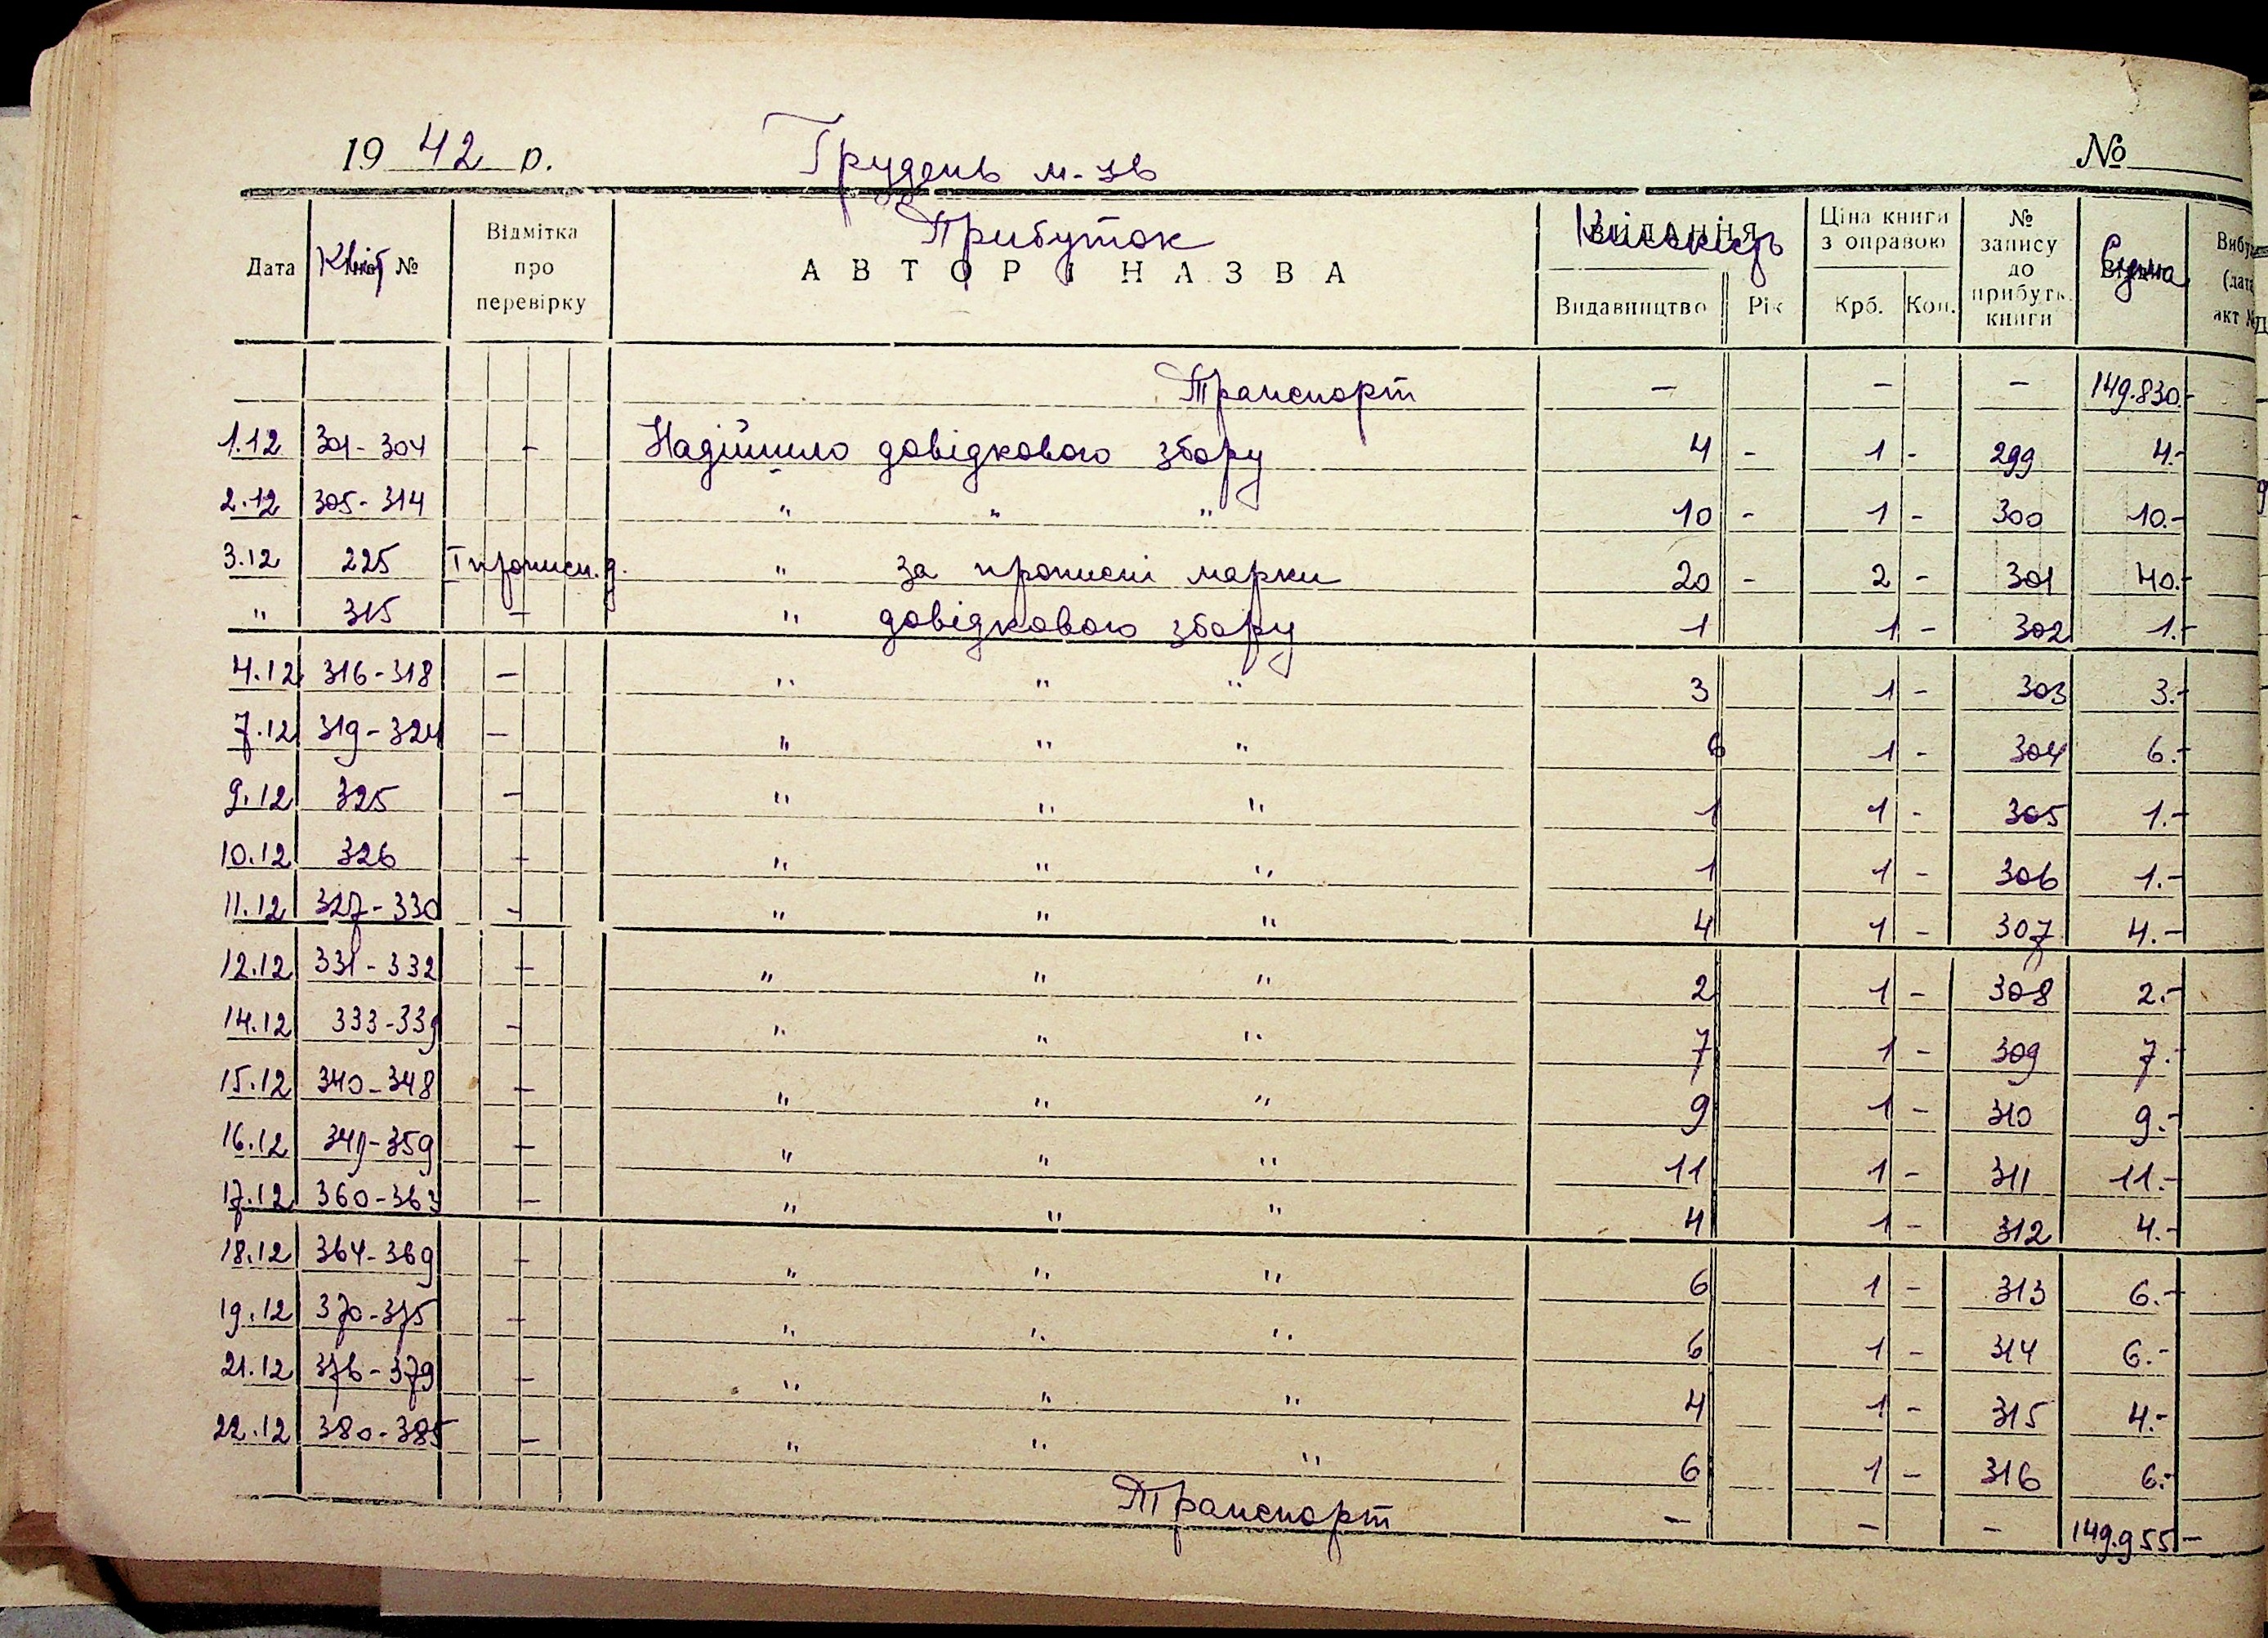 19 42 р. Грудень м-ць №
Прибуток
Дата Квит № Відмітка про перевірку АВТОР І НАЗВА Кількість Видавництво Рік Ціна книги з оправою Крб. Коп. № запису до прибутк. книги Сума
Транспорт — — — 149.830.-
1.12 301-304 - Надійшло довідкового збору 4 - 1 - 299 4.-
2.12 305-314 " " " 10 - 1 - 300 10.-
3.12 225 І прописн. д. " за прописні марки 20 - 2 - 301 40.-
" 315 - " довідкового збору 1 1 - 302 1.-
4.12 316-318 - " " " 3 1 - 303 3.-
7.12 319-324 - " " " 6 1 - 304 6.-
9.12 325 - " " " 1 1 - 305 1.-
10.12 326 - " " " 1 1 - 306 1.-
11.12 327-330 - " " " 4 1 - 307 4.-
12.12 331-332 - " " " 2 1 - 308 2.-
14.12 333-339 - " " " 7 1 - 309 7.-
15.12 340-348 - " " " 9 1 - 310 9.-
16.12 349-359 - " " " 11 1 - 311 11.-
17.12 360-363 - " " " 4 1 - 312 4.-
18.12 364-369 - " " " 6 1 - 313 6.-
19.12 370-375 - " " " 6 1 - 314 6.-
21.12 376-379 - " " " 4 1 - 315 4.-
22.12 380-385 - " " " 6 1 - 316 6.-
Транспорт — — — 149.955-